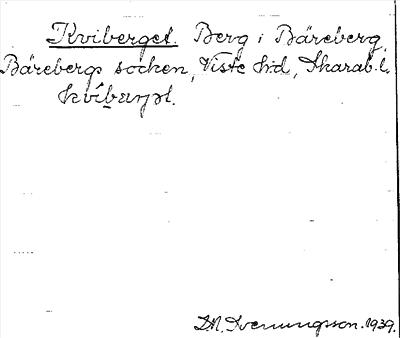 Kviberget. Berg i Bäreberg,
Bärebergs socken, Viste hd, Skarab. l.
kvíbærjət.
D.N. Svenungsson. 1939.